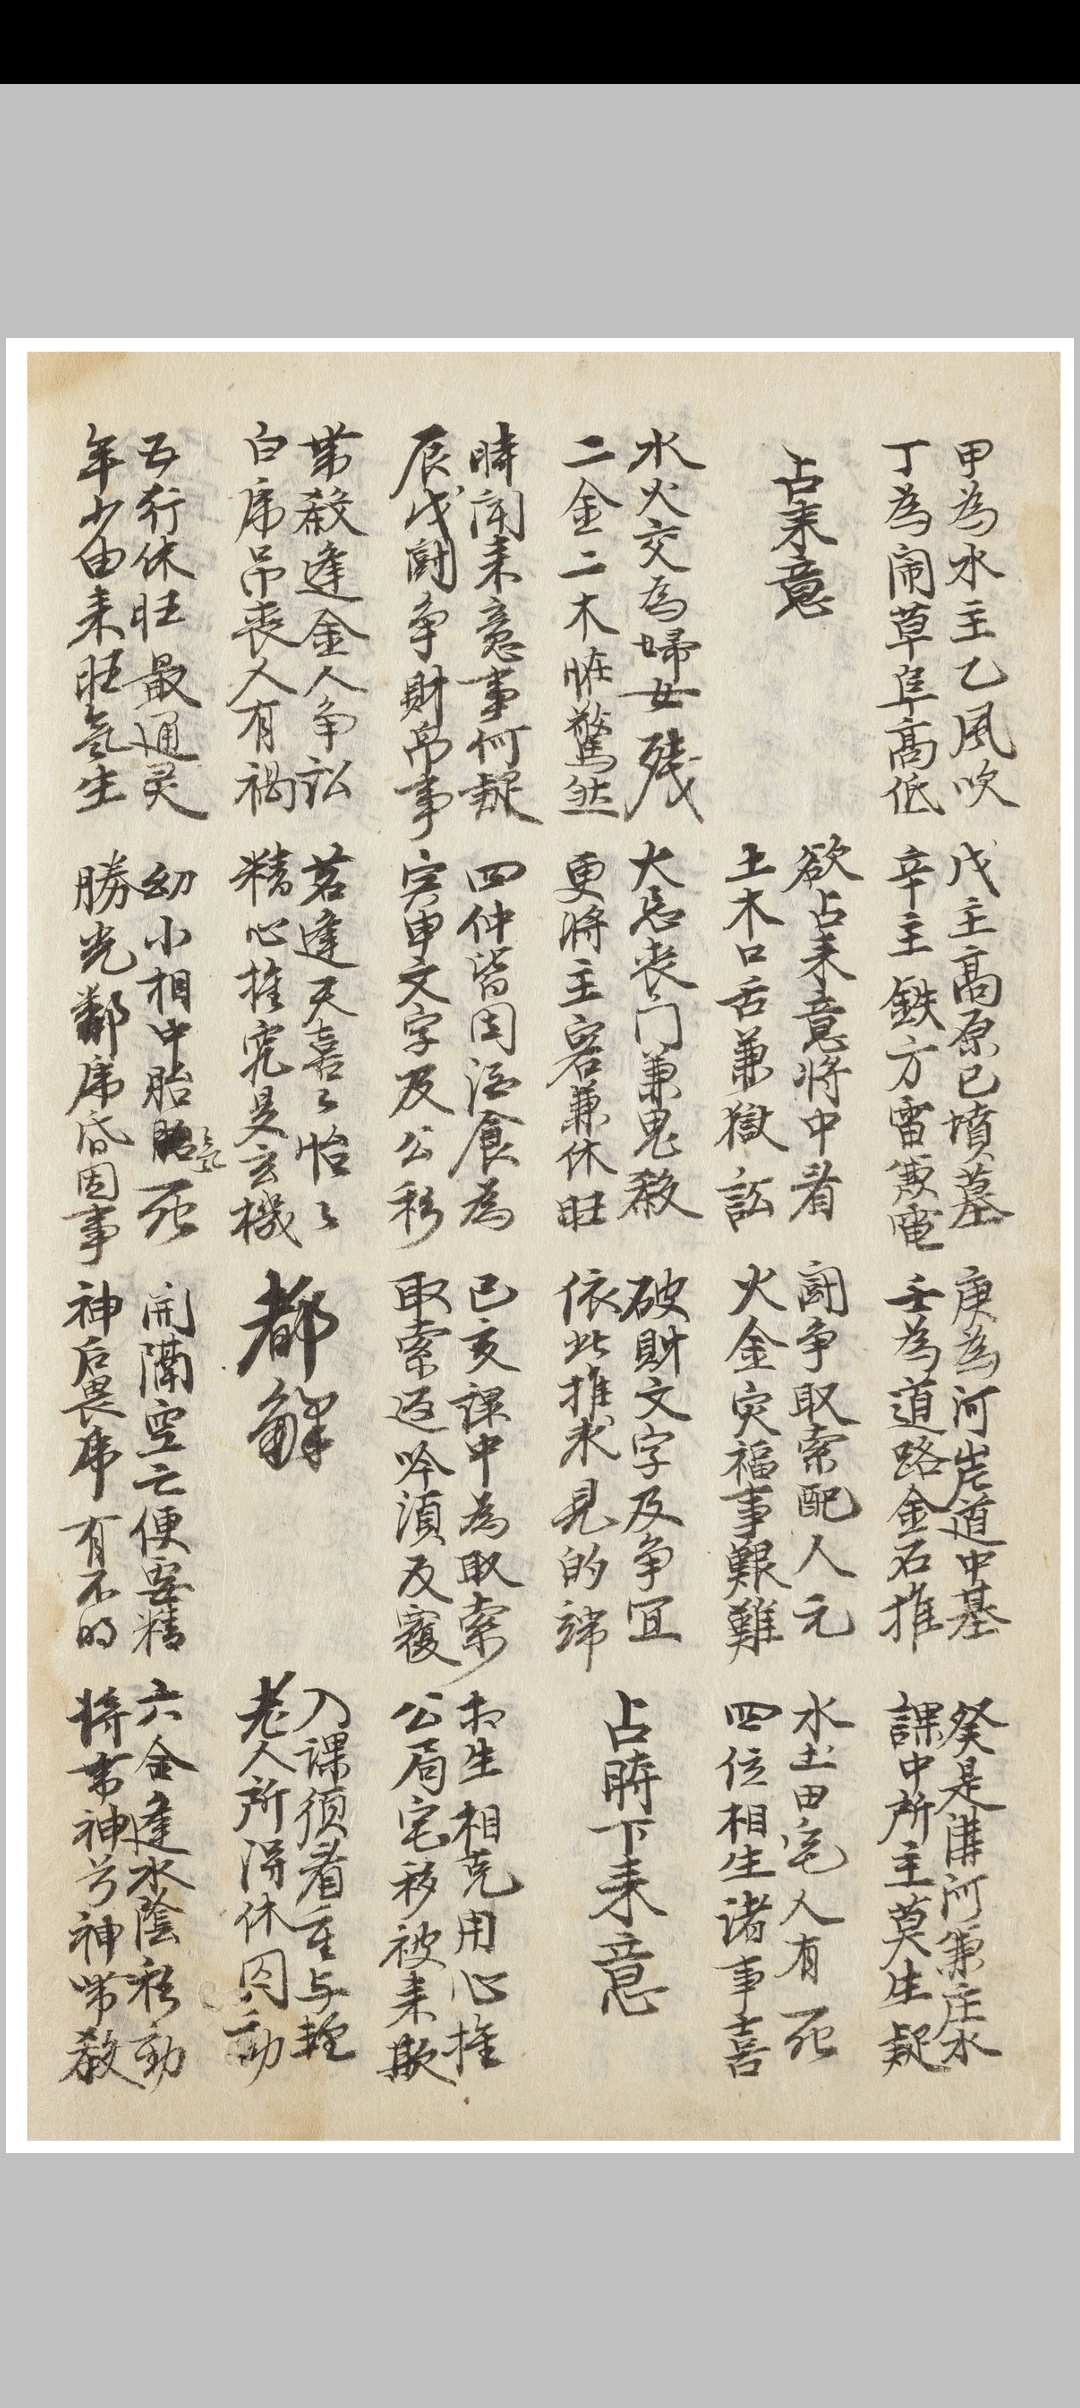 甲為水主乙風吹 戊主高原己墳墓 庚為河岸道中基 癸是溝河兼庄水
丁為闹草阜高低 辛主鉄方雷兼電 壬為道路金石推 課中所主莫生疑
占来意 欲占来意将中看 鬪争取索配人元 水土田宅人有死
土木口舌兼獄訟 火金灾福事艱難 四位相生诸事喜
水火交為婦女残 大忌喪门兼鬼殺 破財文字及争冝 占時下来意
二金二木恠驚然 更将主客兼休旺 依此推求見的端
時闻来意事何疑 四仲皆因酒食為 已亥課中為取索 相生相克用心推
辰戌鬪争財帛事 寅申文字及公移 取索返吟湏反覆 公局宅移被来欺
带殺逢金人争訟 若逢天喜〻怡〻 都解 入課须看重与轻
白虎吊喪人有祸 精心推究是玄機 老人所得休囚動
五行休旺最通灵 幼小相中胎死气 開隔空亡便要精 六合逢水蔭移動
年少由来旺气生 勝光 虎昏因事 神后畏虎有不明 将带神兮神带殺